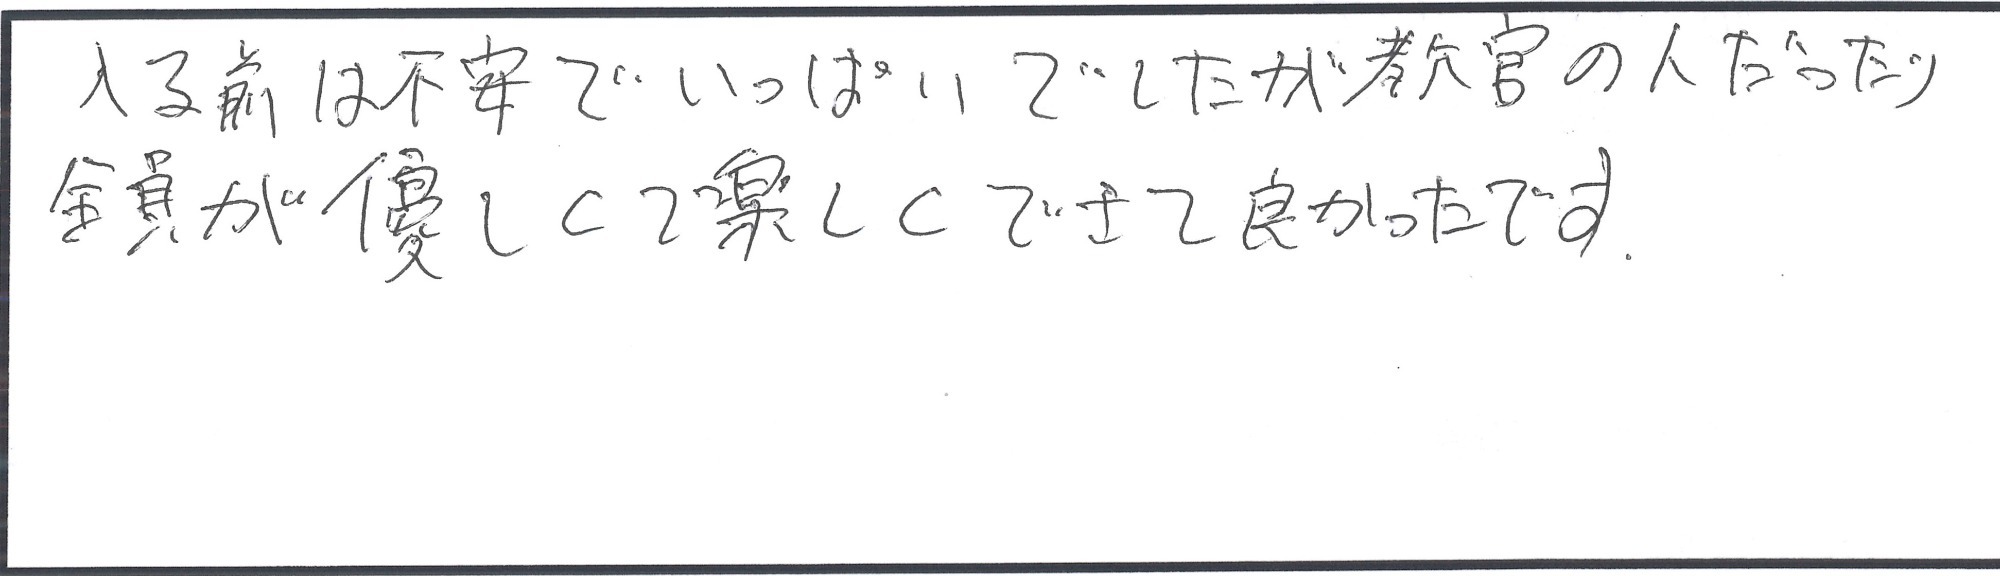 入る前は不安でいっぱいでしたが教官の人だったり
全員が優しくて楽しくできて良かったです.